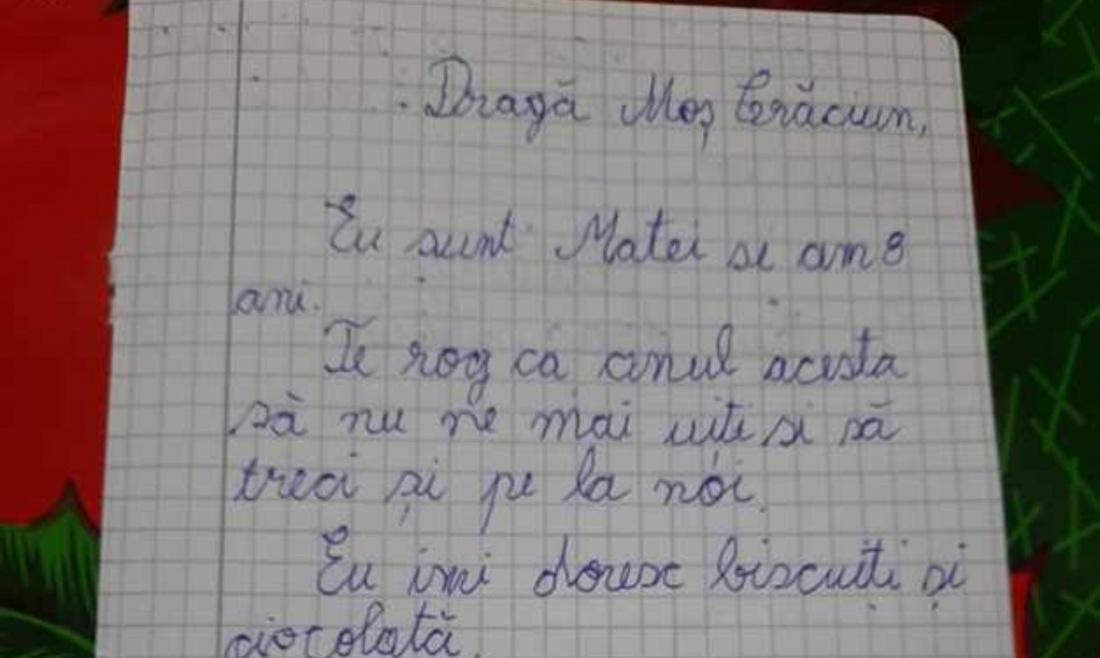 Dragă Moș Crăciun,
Eu sunt Matei si am 8
ani.
Te rog ca anul acesta
să nu ne mai uiti si să
treci și pe la noi.
Eu imi doresc biscuiți și
ciocolată.